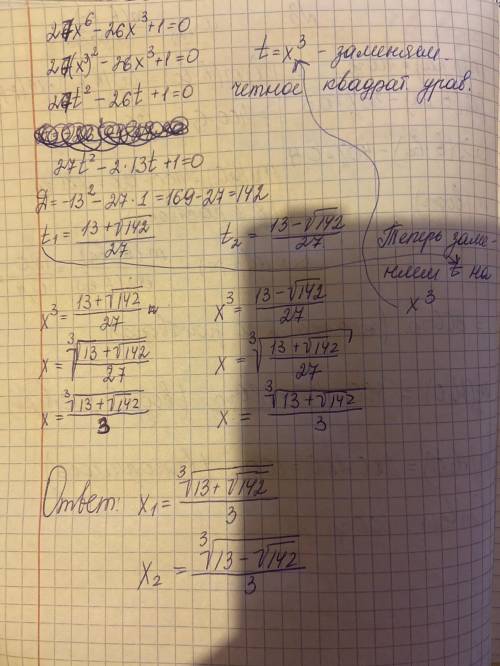 27x⁶ - 26x³ + 1 = 0
27(x³)² - 26x³ + 1 = 0
27t² - 26t + 1 = 0
t = x³ - заменяем.
четное квадрат урав.
27t² - 2·13t + 1 = 0
D = -13² - 27·1 = 169 - 27 = 142
t₁ = (13 + √142)/27    t₂ = (13 - √142)/27
Теперь заме-
няем t на
x³
x³ = (13 + √142)/27    x³ = (13 - √142)/27
x = ∛((13 + √142)/27)    x = ∛((13 + √142)/27)
x = ∛(13 + √142)/3    x = ∛(13 + √142)/3
Ответ: x₁ = ∛(13 + √142)/3
x₂ = ∛(13 - √142)/3